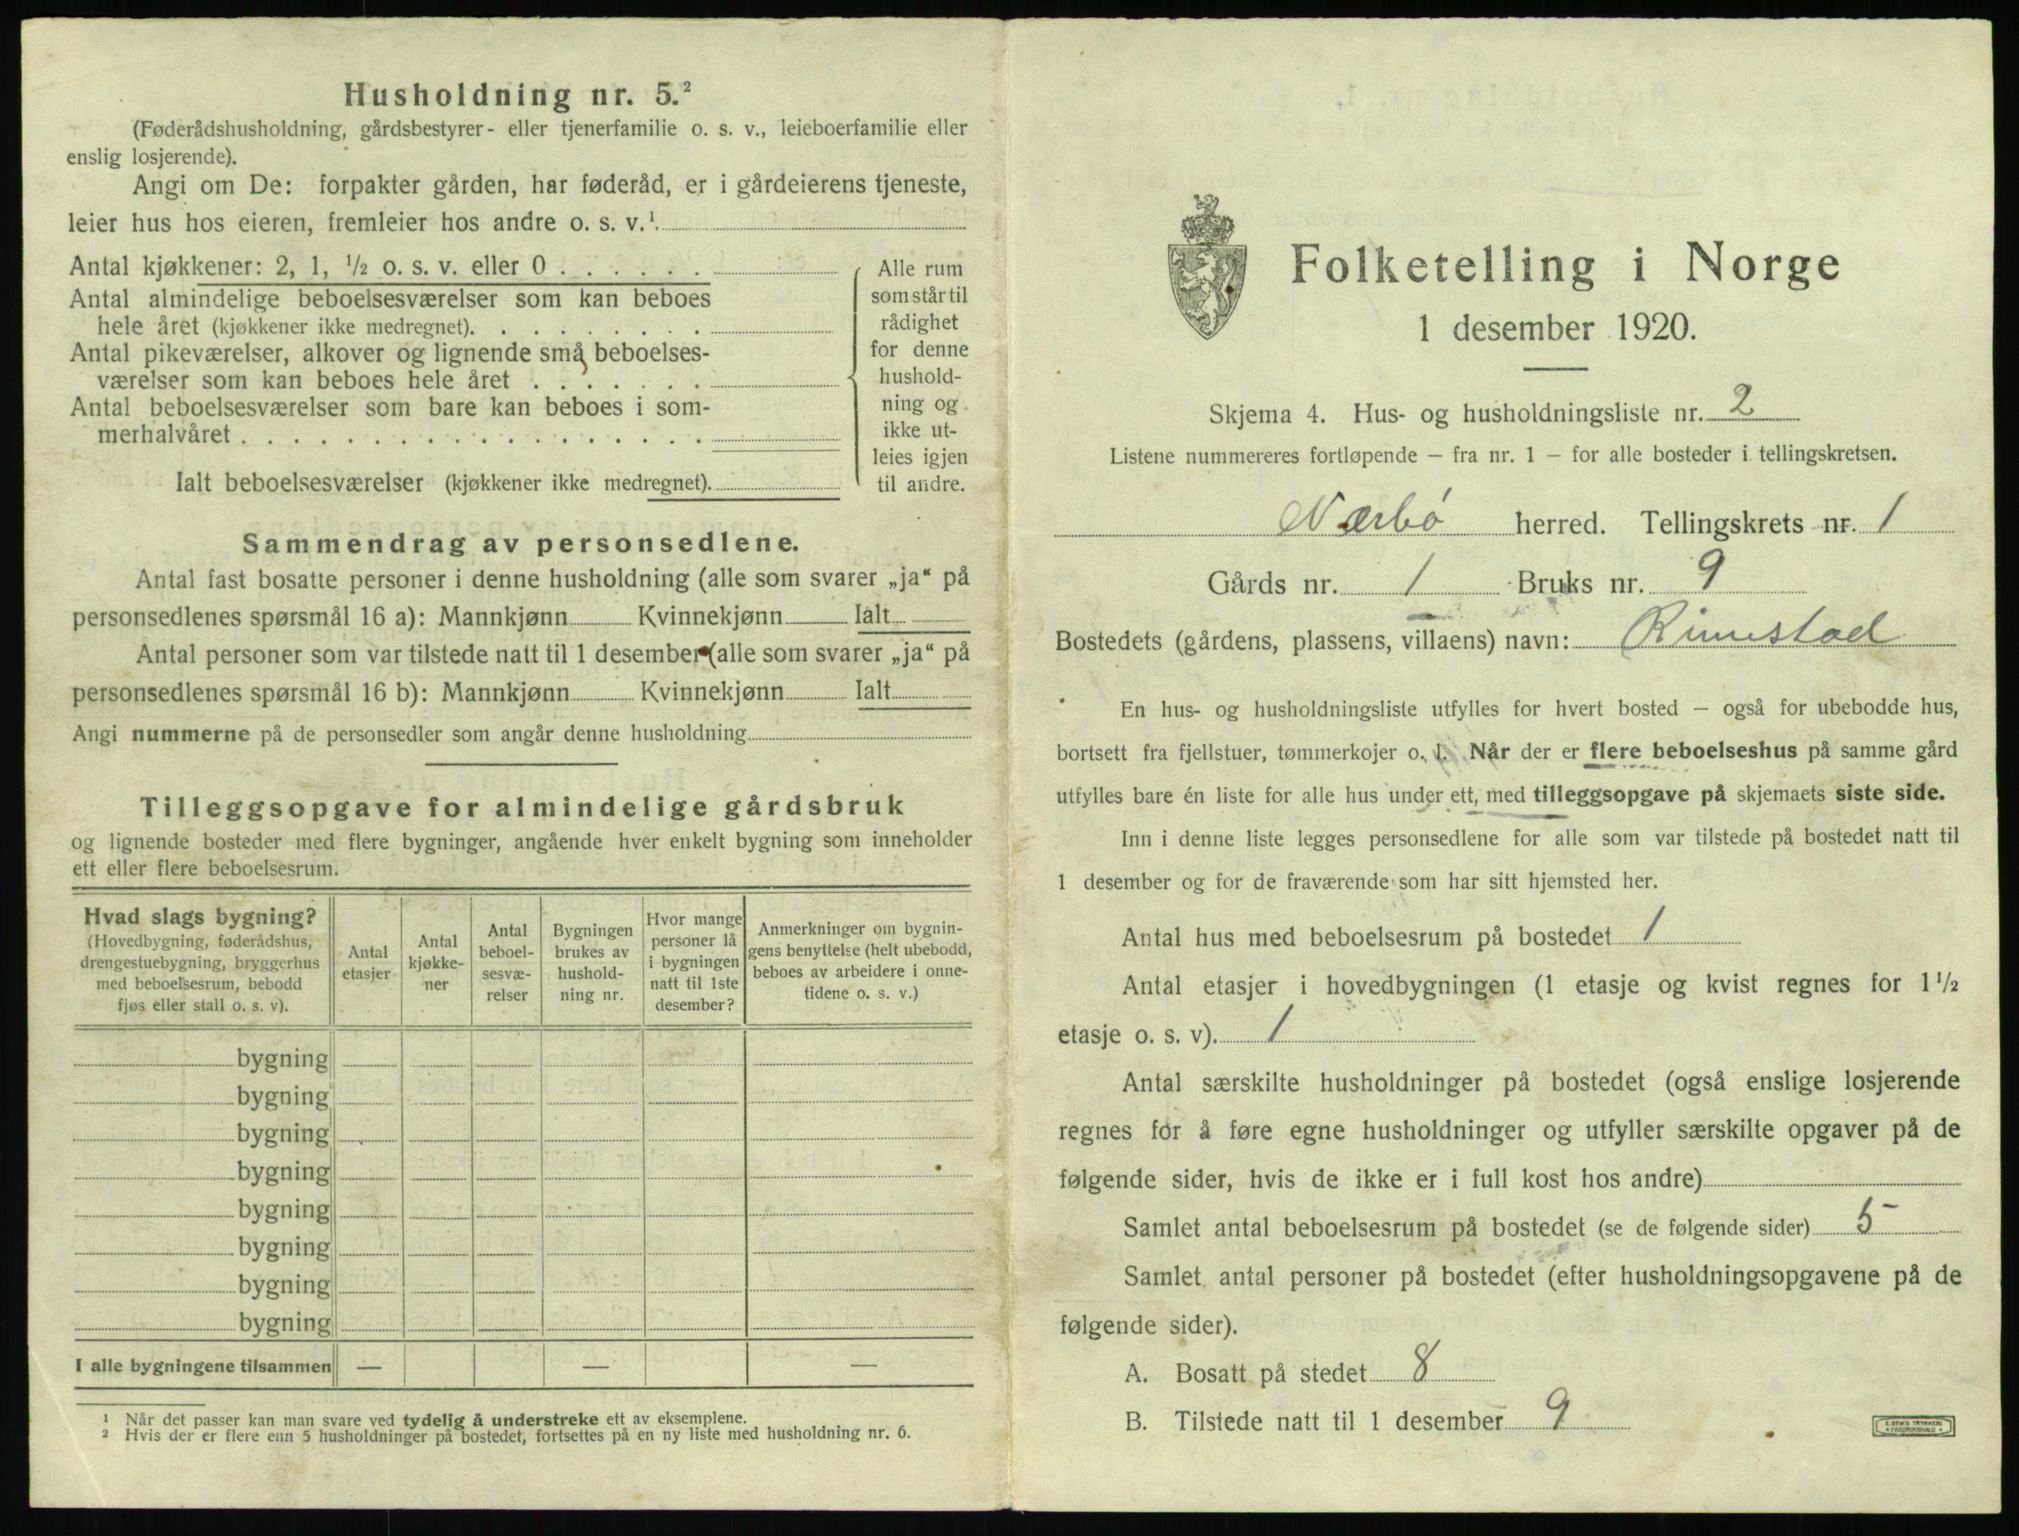 Husholdning nr. 5.²
(Føderådshusholdning, gårdsbestyrer- eller tjenerfamilie o. s. v., leieboerfamilie eller
enslig losjerende).
Angi om De: forpakter gården, har føderåd, er i gårdeierens tjeneste,
leier hus hos eieren, fremleier hos andre o. s. v.¹
Antal kjøkkener: 2, 1, ½ o. s. v. eller 0 . . . . . .
Antal almindelige beboelsesværelser som kan beboes
hele året (kjøkkener ikke medregnet). . . . . . . . .
Antal pikeværelser, alkover og lignende små beboelses-
værelser som kan beboes hele året . . . . . . .
Antal beboelsesværelser som bare kan beboes i som-
merhalvåret . . . . . . . . . . . . . . . . . .
Ialt beboelsesværelser (kjøkkener ikke medregnet).
Alle rum
som står til
rådighet
for denne
hushold-
ning og
ikke ut-
leies igjen
til andre.
Sammendrag av personsedlene.
Antal fast bosatte personer i denne husholdning (alle som svarer „ja“ på
personsedlenes spørsmål 16 a): Mannkjønn Kvinnekjønn Ialt
Antal personer som var tilstede natt til 1 desember (alle som svarer „ja“ på
personsedlenes spørsmål 16 b): Mannkjønn Kvinnekjønn Ialt
Angi nummerne på de personsedler som angår denne husholdning
Tilleggsopgave for almindelige gårdsbruk
og lignende bosteder med flere bygninger, angående hver enkelt bygning som inneholder
ett eller flere beboelsesrum.
Hvad slags bygning?
(Hovedbygning, føderådshus,
drengestuebygning, bryggerhus
med beboelsesrum, bebodd
fjøs eller stall o. s. v).
Antal
etasjer
Antal
kjøkke-
ner
Antal
beboel-
sesvæ-
relser
Bygningen
brukes av
hushold-
ning nr.
Hvor mange
personer lå
i bygningen
natt til 1ste
desember?
Anmerkninger om bygnin-
gens benyttelse (helt ubebodd,
beboes av arbeidere i onne-
tidene o. s. v.)
bygning
bygning
bygning
bygning
bygning
bygning
bygning
bygning
I alle bygningene tilsammen — — —
¹ Når det passer kan man svare ved tydelig å understreke ett av eksemplene.
² Hvis der er flere enn 5 husholdninger på bostedet, fortsettes på en ny liste med husholdning nr. 6.
Folketelling i Norge
1 desember 1920.
Skjema 4. Hus- og husholdningsliste nr. 2
Listene nummereres fortløpende — fra nr. 1 — for alle bosteder i tellingskretsen.
Nærbø herred. Tellingskrets nr. 1
Gårds nr. 1 Bruks nr. 9
Bostedets (gårdens, plassens, villaens) navn: Rimestad
En hus- og husholdningsliste utfylles for hvert bosted — også for ubebodde hus,
bortsett fra fjellstuer, tømmerkojer o. l. Når der er flere beboelseshus på samme gård
utfylles bare én liste for alle hus under ett, med tilleggsopgave på skjemaets siste side.
Inn i denne liste legges personsedlene for alle som var tilstede på bostedet natt til
1 desember og for de fraværende som har sitt hjemsted her.
Antal hus med beboelsesrum på bostedet 1
Antal etasjer i hovedbygningen (1 etasje og kvist regnes for 1½
etasje o. s. v). 1
Antal særskilte husholdninger på bostedet (også enslige losjerende
regnes for å føre egne husholdninger og utfyller særskilte opgaver på de
følgende sider, hvis de ikke er i full kost hos andre)
Samlet antal beboelsesrum på bostedet (se de følgende sider) 5
Samlet antal personer på bostedet (efter husholdningsopgavene på de
følgende sider).
A. Bosatt på stedet 8
B. Tilstede natt til 1 desember 9